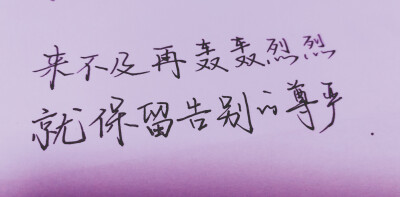 来不及再轰轰烈烈
就保留告别的尊严.